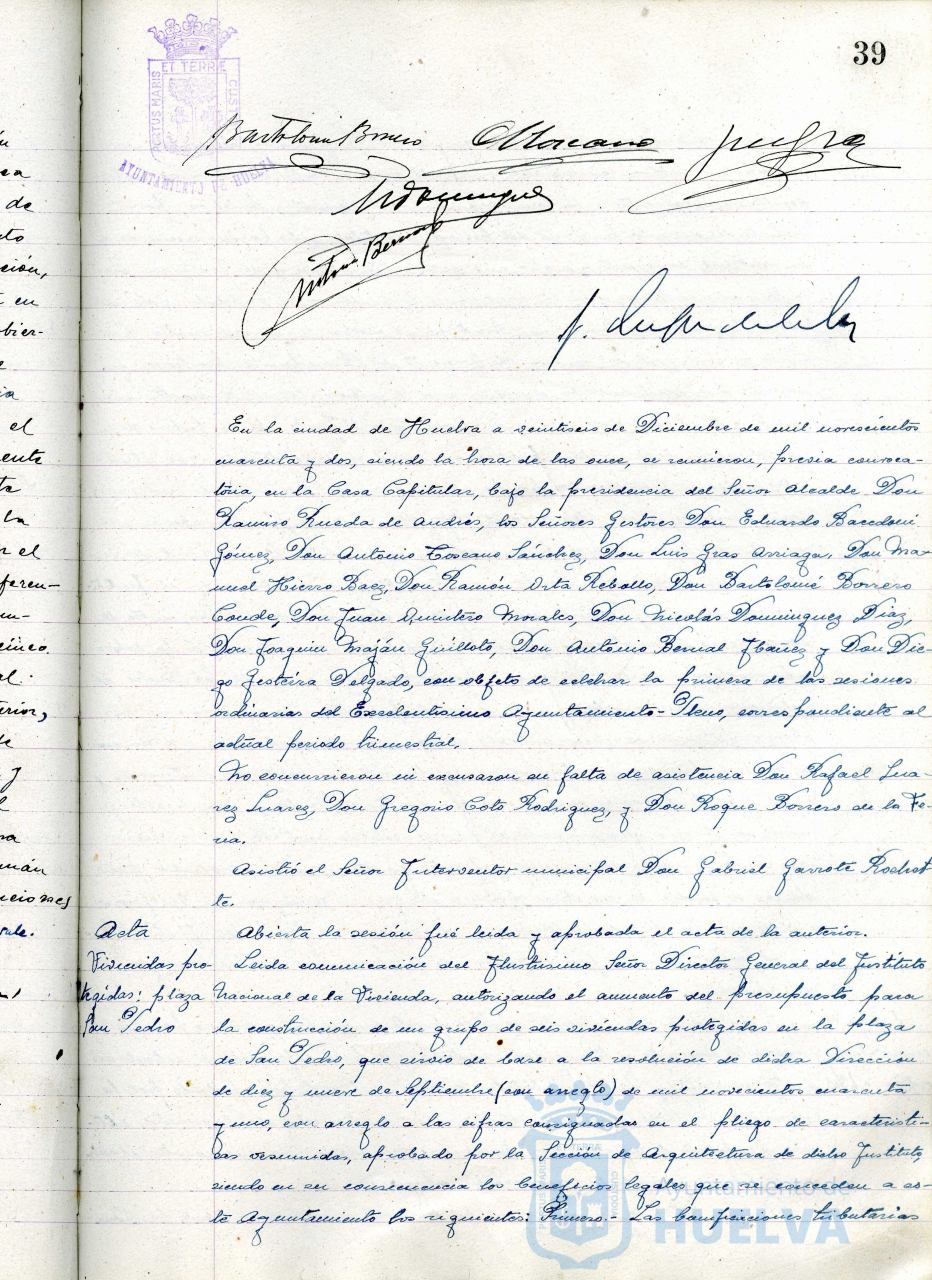 39
PORTUS MARIS ET TERRE CUSTODIA
AYUNTAMIENTO DE HUELVA
Bartolomé Borrero
Antonio Bernal
de
ción,
en
bier-
el
ente
la
r el
feren-
cinco
al.
erior,
y
ciones
En la ciudad de Huelva a veintiseis de Diciembre de mil novecientos
cuarenta y dos, siendo la hora de las once, se reunieron, previa convoca-
toria, en la Casa Capitular, bajo la presidencia del Señor Alcalde Don
Ramiro Rueda de Andrés, los Señores Gestores Don Eduardo Bacedoni
Gómez, Don Antonio Toscano Sánchez, Don Luis Gras Arriaga, Don Ma-
nuel Hierro Baez, Don Ramón Orta Rebollo, Don Bartolomé Borrero
Conde, Don Juan Quintero Morales, Don Nicolás Dominguez Diaz,
Don Joaquin Maján Guilloto, Don Antonio Bernal Ibañez y Don Die-
go Gesteira Delgado, con objeto de celebrar la primera de las sesiones
ordinarias del Excelentisimo Ayuntamiento-Pleno, correspondiente al
actual periodo trimestral.
No concurrieron ni excusaron su falta de asistencia Don Rafael Sua-
rez Suarez, Don Gregorio Coto Rodriguez, y Don Roque Borrero de la Fe-
ria.
Asistió el Señor Interventor municipal Don Gabriel Garrote
te.
Acta
Abierta la sesión fué leida y aprobada el acta de la anterior.
Viviendas pro-
tegidas: plaza
San Pedro
Leida comunicación del Ilustrisimo Señor Director General del Instituto
Nacional de la Vivienda, autorizando el aumento del presupuesto para
la construcción de un grupo de seis viviendas protegidas en la plaza
de San Pedro, que sirvio de base a la resolución de dicha Dirección
de diez y nueve de Septiembre (con arreglo) de mil novecientos cuarenta
y uno, con arreglo a las cifras consignadas en el pliego de caracteristi-
cas resumidas, aprobado por la Sección de Arquitectura de dicho Instituto,
siendo en su consecuencia los beneficios legales que se conceden a es-
te Ayuntamiento los siguientes: Primero.- Las bonificaciones tributarias
Ayuntamiento de
HUELVA